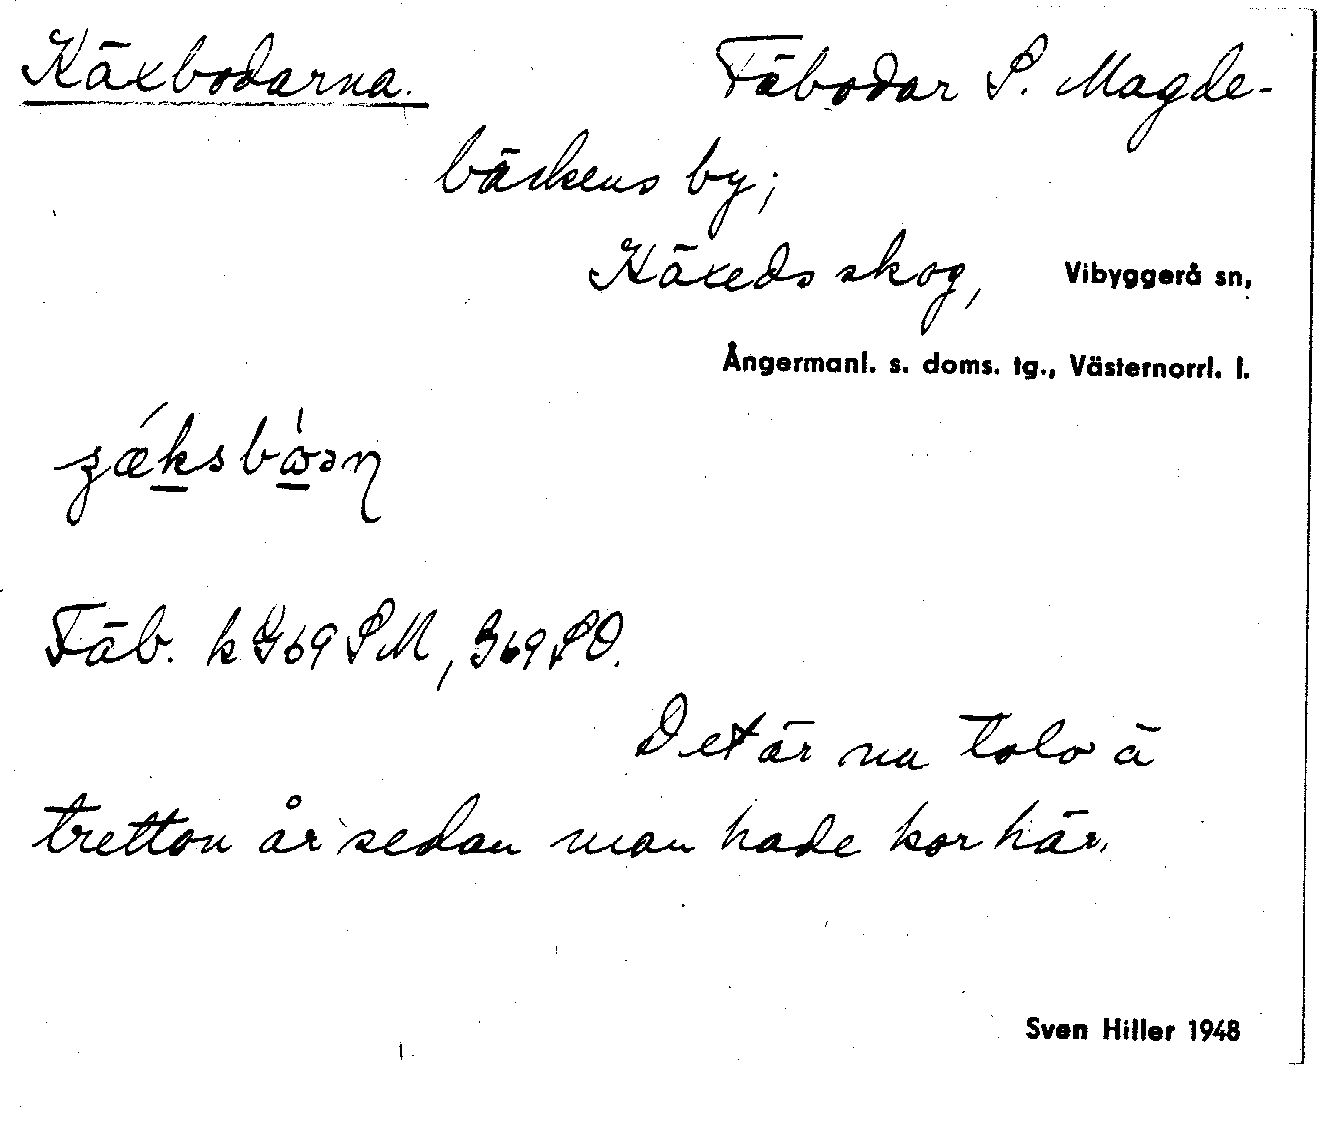 Käxbodarna. Fäbodar S. Magde-
bäckens by;
Käxeds skog, Vibyggerå sn,
Ångermanl. s. doms. tg., Västernorrl. l.
Fäb. k G69 SM, G69 SO.
Det är nu tolv å
tretton år sedan man hade kor här.
Sven Hiller 1948